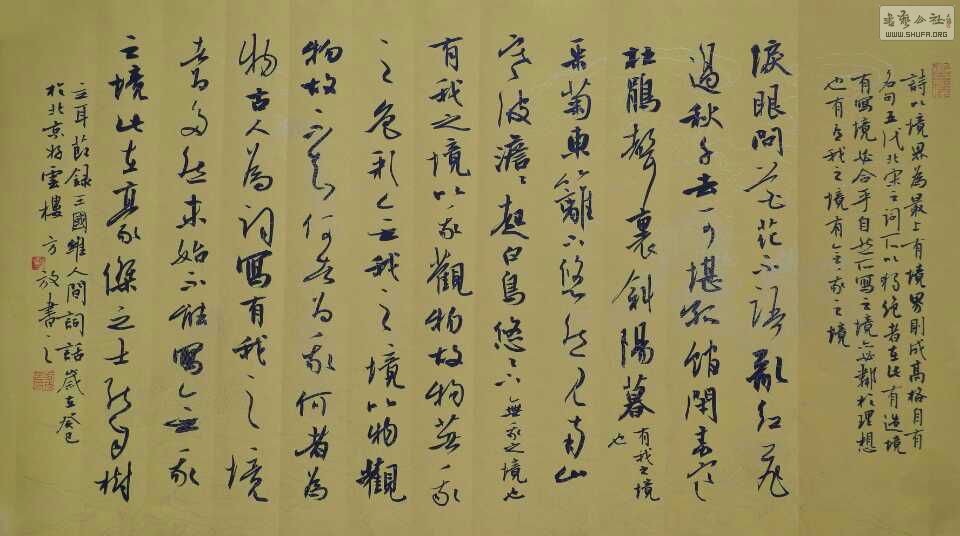 詩以境界為最上有境界則成高格自有
名句五代北宋之詞所以獨絕者在此有造境
有寫境必合乎自然所寫之境亦必鄰於理想
也有有我之境有無我之境
淚眼問花花不語亂紅飛
過秋千去可堪孤館閉春寒
杜鵑聲裏斜陽暮有我之境
也
采菊東籬下悠然見南山
寒波澹々起白鳥悠々下無我之境也
有我之境以我觀物故物皆我
之色彩無我之境以物觀
物故不知何者為我何者為
物古人為詞寫有我之境
者為多然未始不能寫無我
之境此在豪傑之士能自樹
立耳節錄王國維人間詞話歲在癸巳
於北京好雲樓方放書之
書藝公社
WWW.SHUFA.ORG